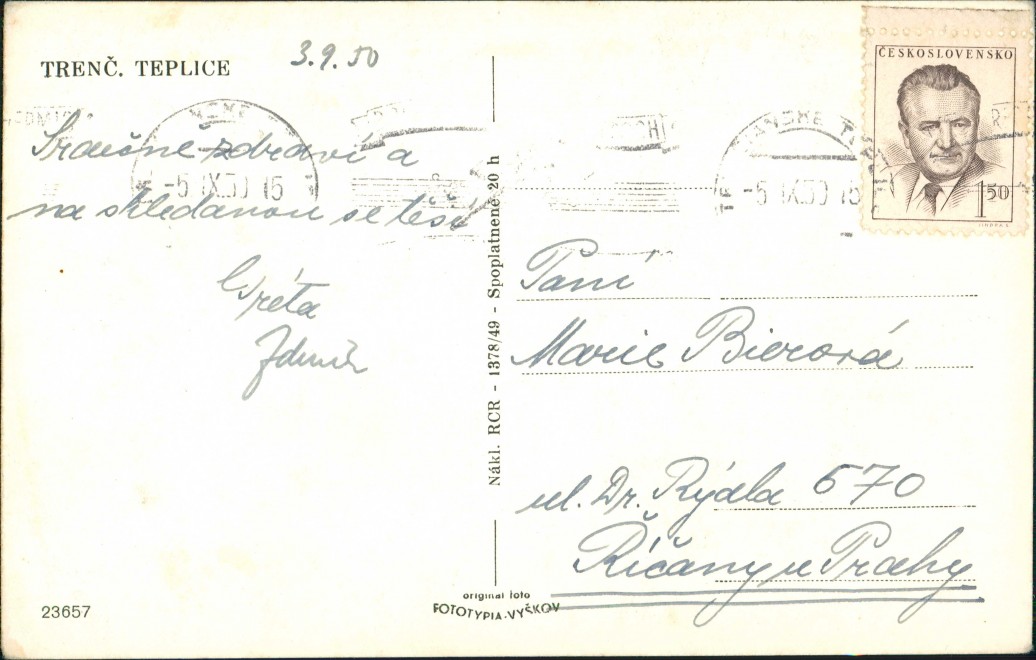 TRENČ. TEPLICE
3.9.50
Srdečně zdraví a
na shledanou se těší
Gréta
Zdeněk
Nákl. RCR - 1378/49 - Spoplatnené 20 h
ČESKOSLOVENSKO
1 50
-5 IX 50 15
-5 IX 50 15
Paní
Marie Bierová
ul. Dr. Rýdla 670
Říčany u Prahy
23657
original foto
FOTOTYPIA-VYŠKOV